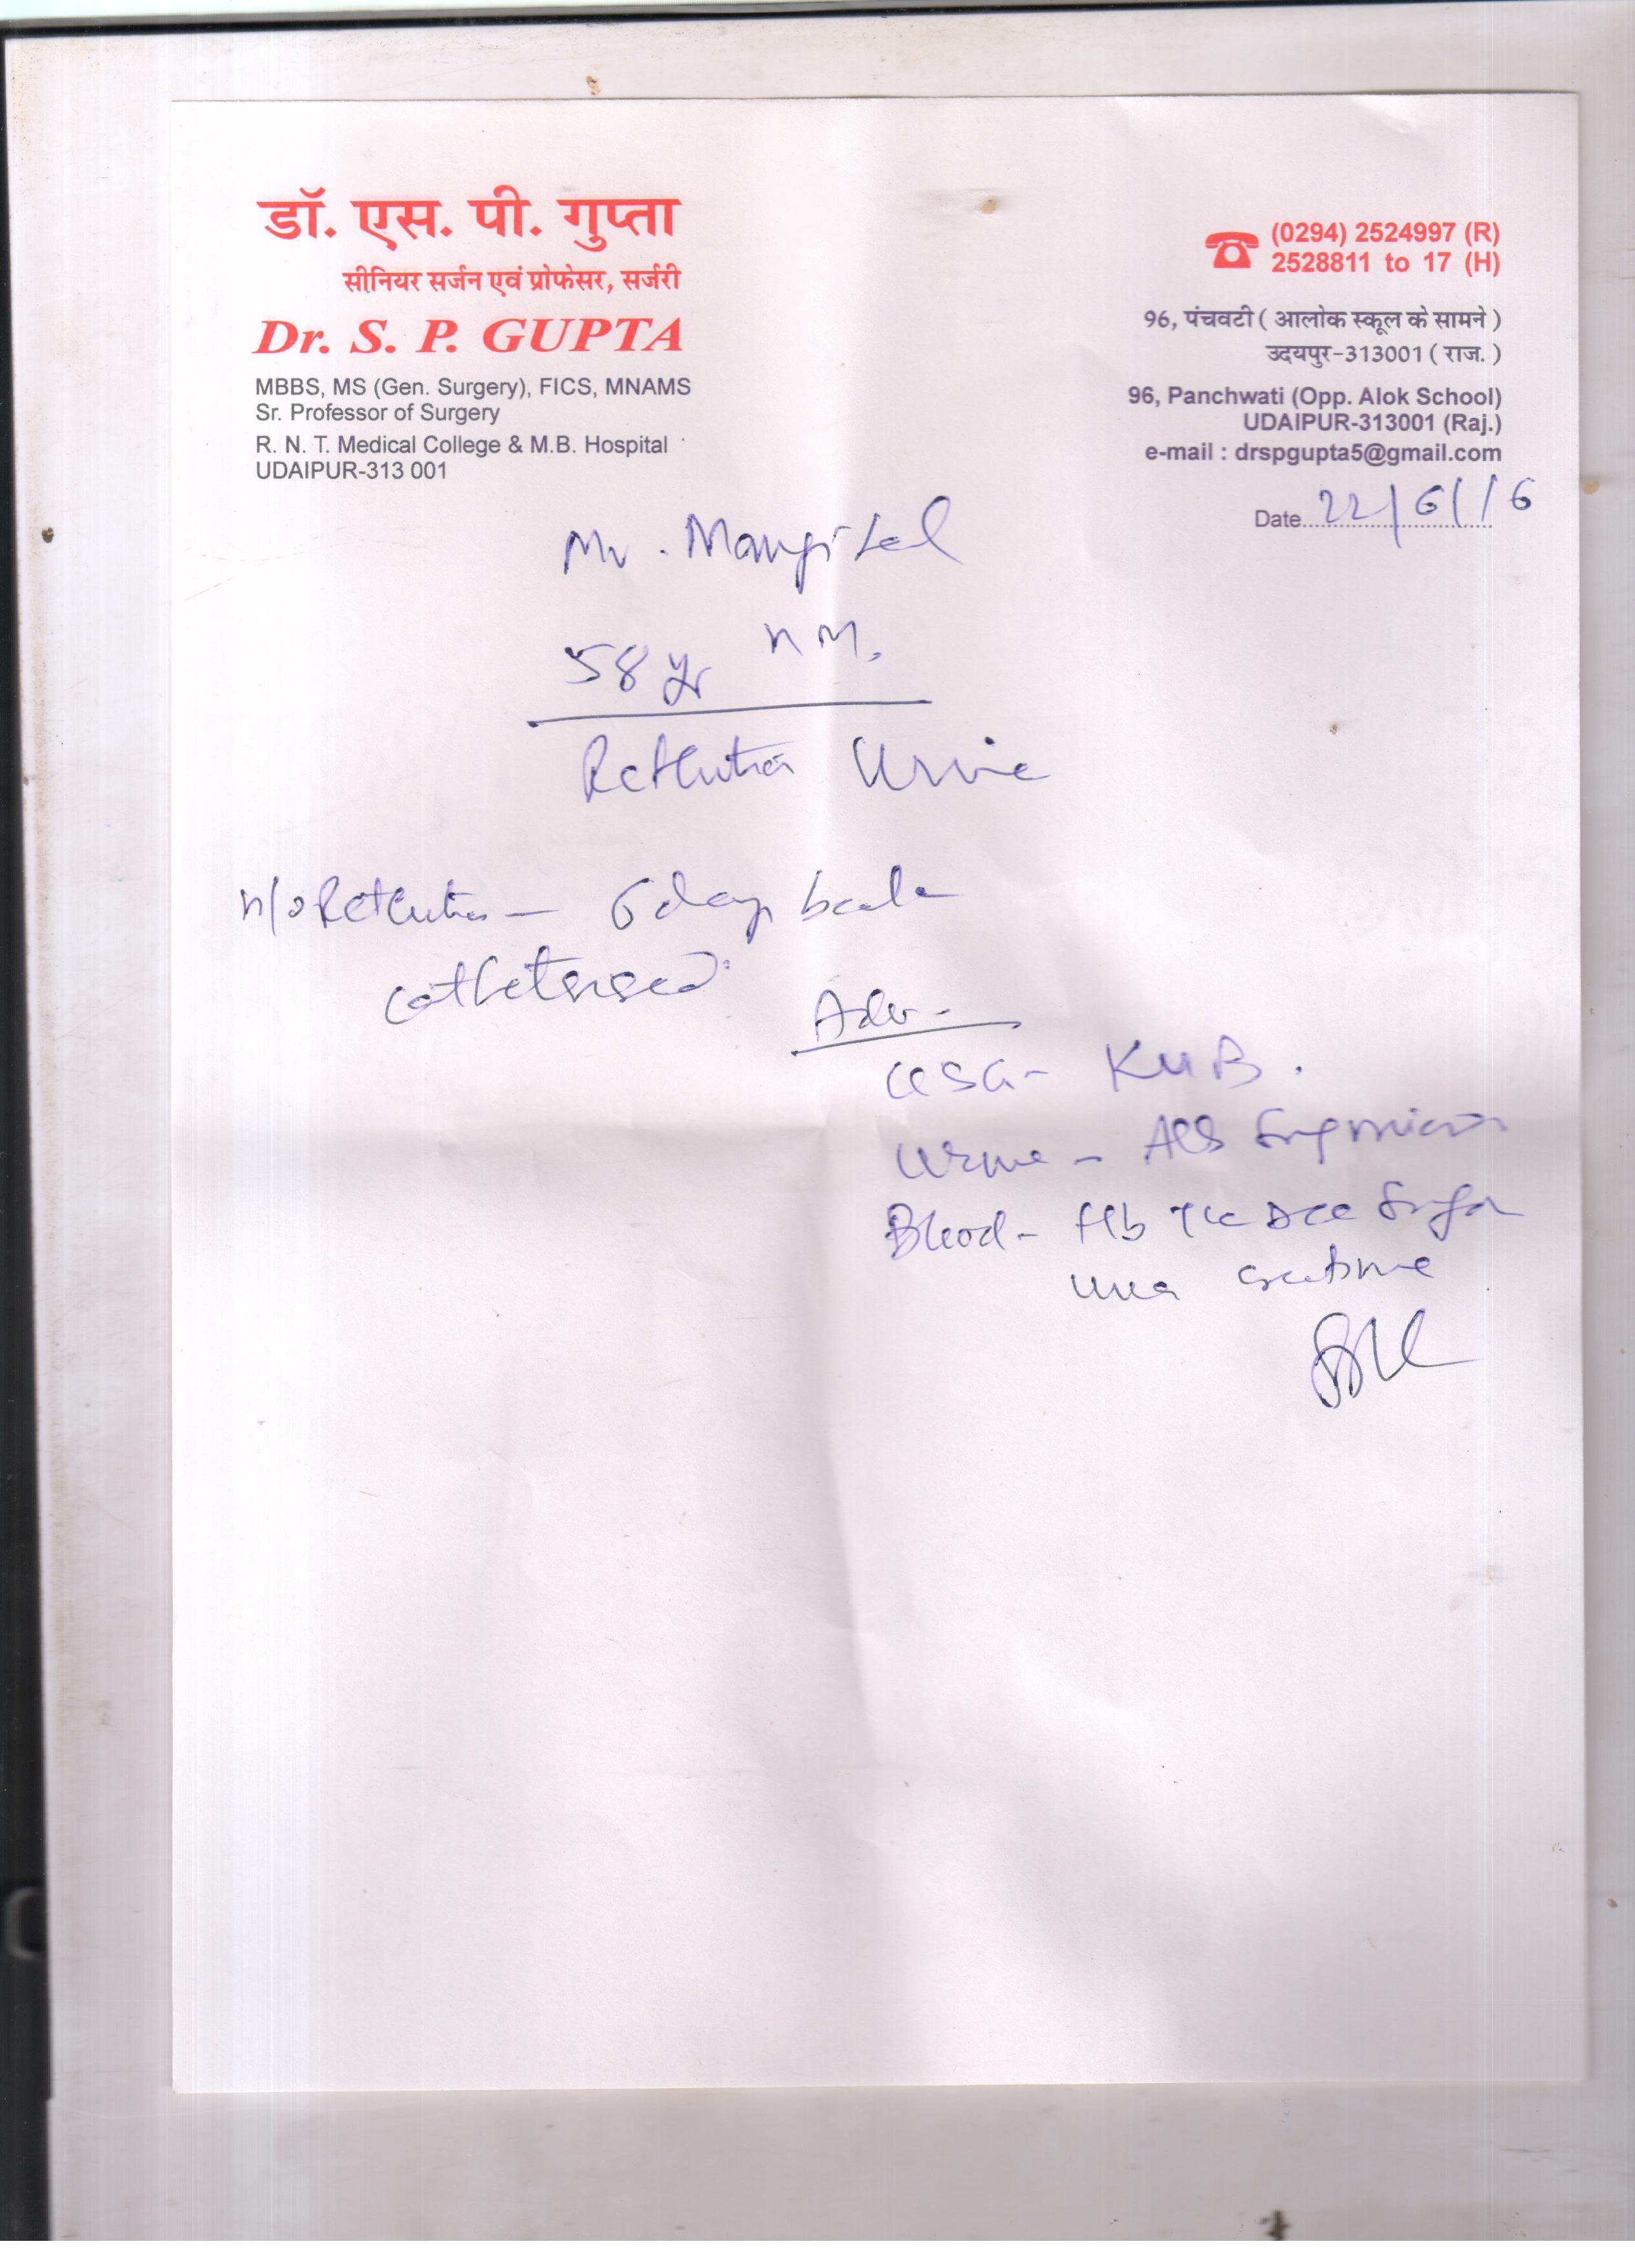 डॉ. एस. पी. गुप्ता
सीनियर सर्जन एवं प्रोफेसर, सर्जरी
Dr. S. P. GUPTA
MBBS, MS (Gen. Surgery), FICS, MNAMS
Sr. Professor of Surgery
R. N. T. Medical College & M.B. Hospital
UDAIPUR-313 001
(0294) 2524997 (R)
2528811 to 17 (H)
96, पंचवटी ( आलोक स्कूल के सामने )
उदयपुर-313001 ( राज. )
96, Panchwati (Opp. Alok School)
UDAIPUR-313001 (Raj.)
e-mail : drspgupta5@gmail.com
Date 22/6/16
Mr. Mangilal
58 yr
Retention Urine
h/o Retention - 6 days back
catheterised
Adv-
USG- KUB.
Urine - Alb Sug micro
Blood - Hb TLC DLC Sugar
Urea creatinine